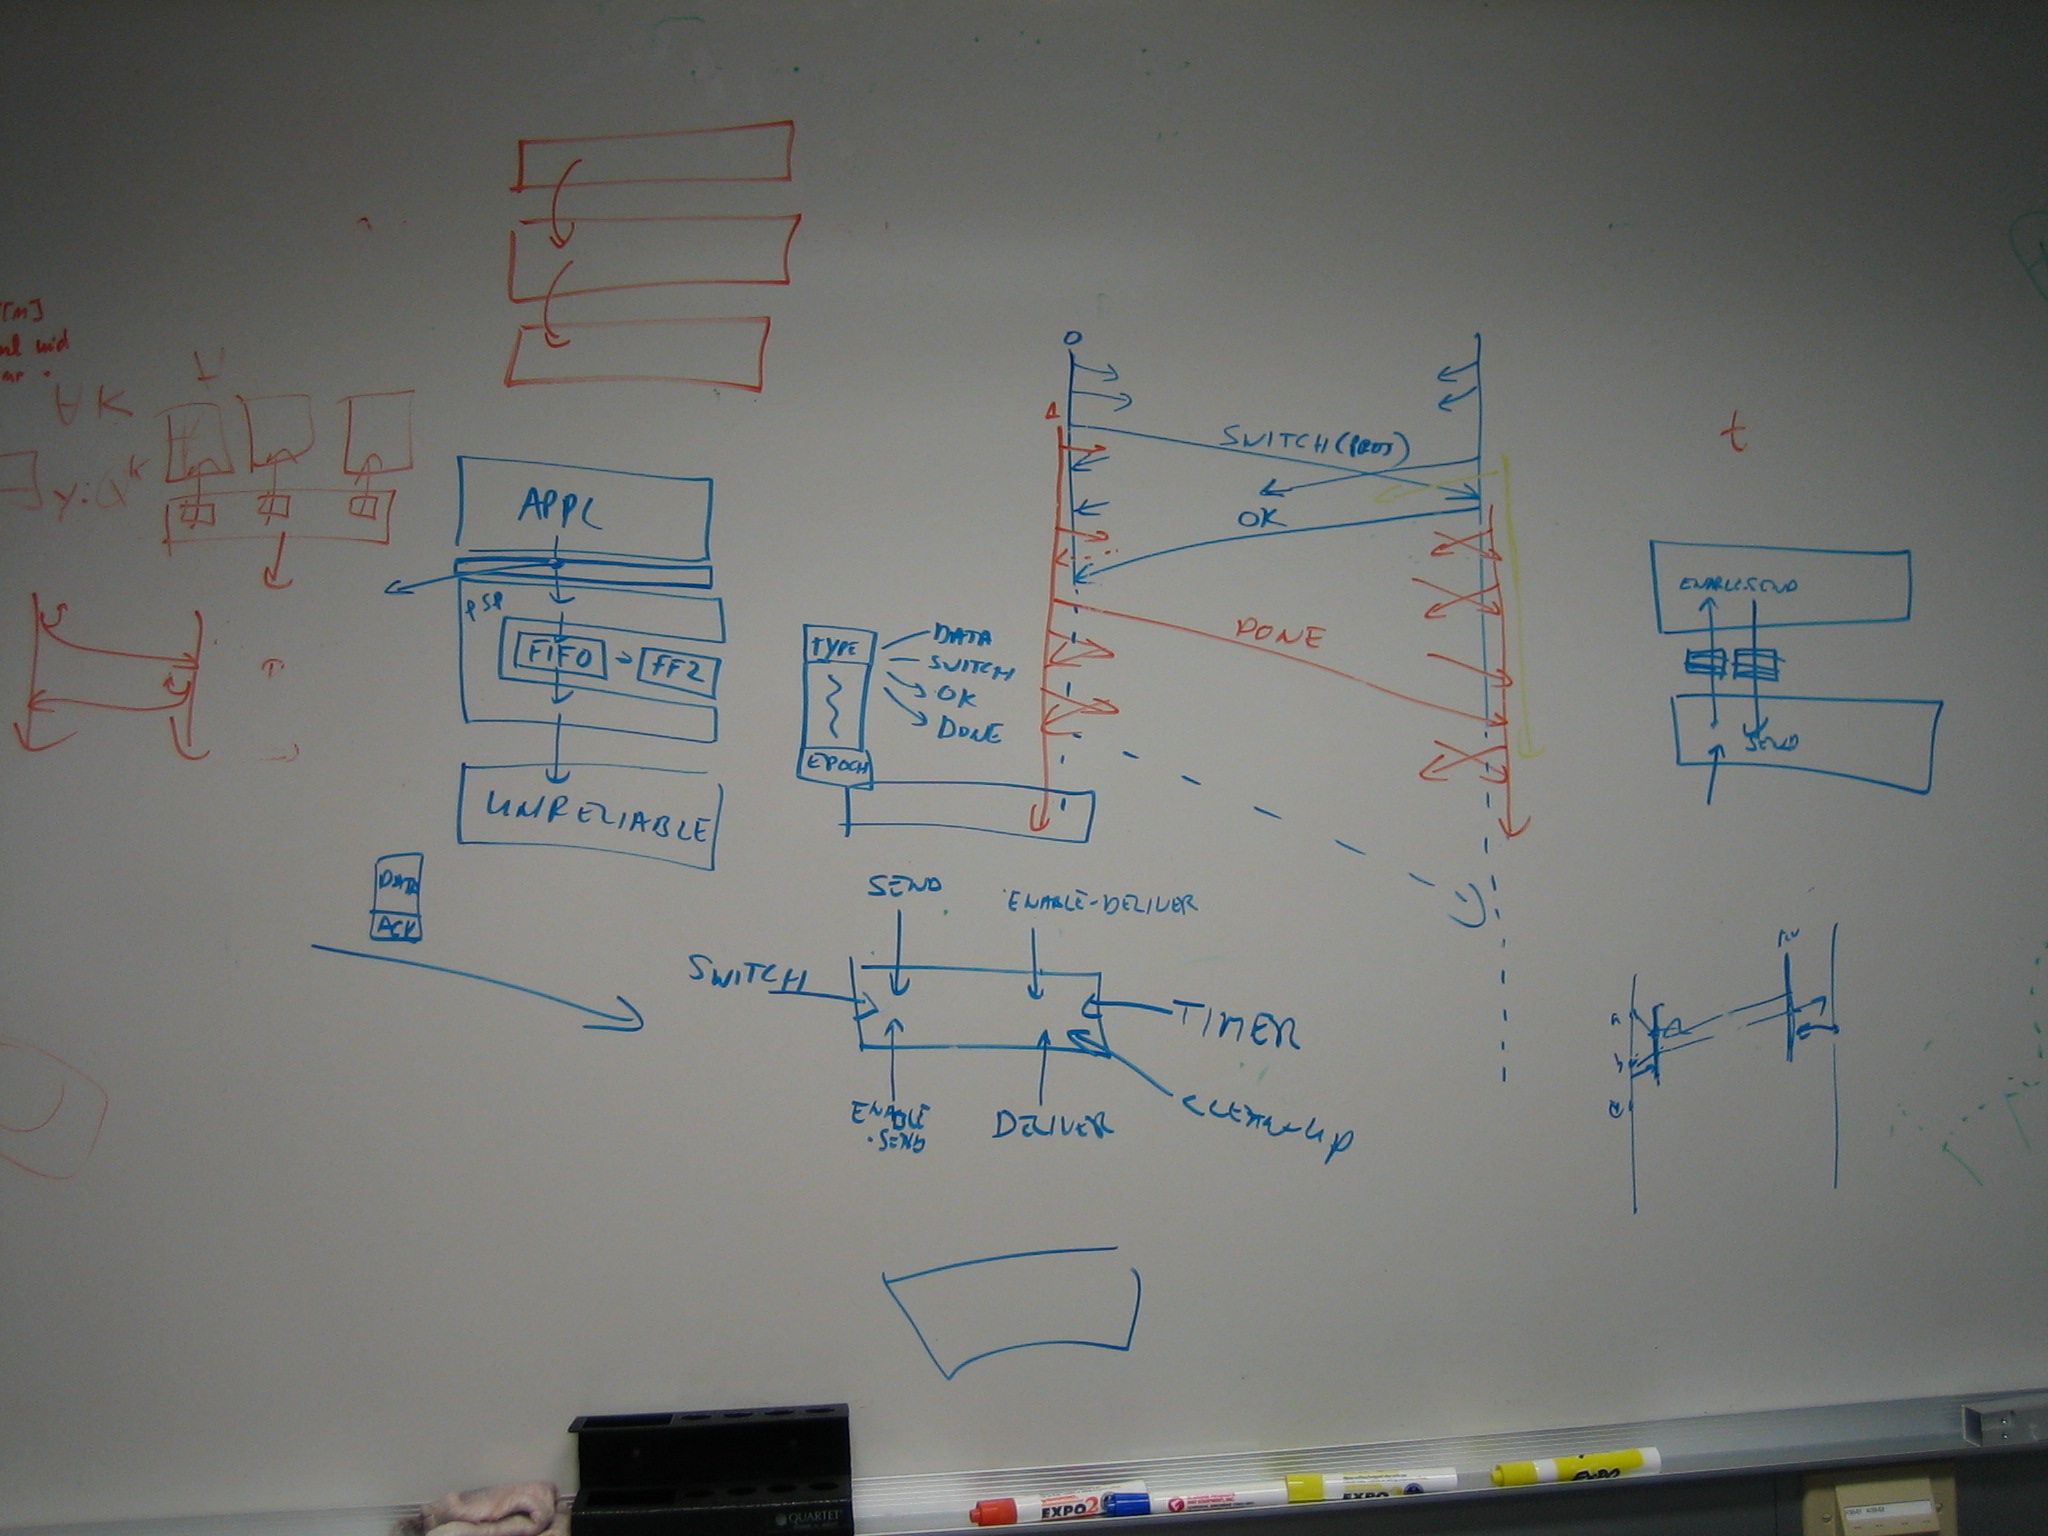 ∀K
y:Q^K
APPL
PSP
FIFO
FF2
UNRELIABLE
DATA
ACK
TYPE
EPOCH
DATA
SWITCH
OK
DONE
0
1
SWITCH(PROT)
OK
DONE
t
ENABLE-SEND
SEND
SEND
ENABLE-DELIVER
SWITCH
TIMER
ENABLE
-SEND
DELIVER
CLEAN-UP
QUARTET
EXPO2
EXPO
EXPO